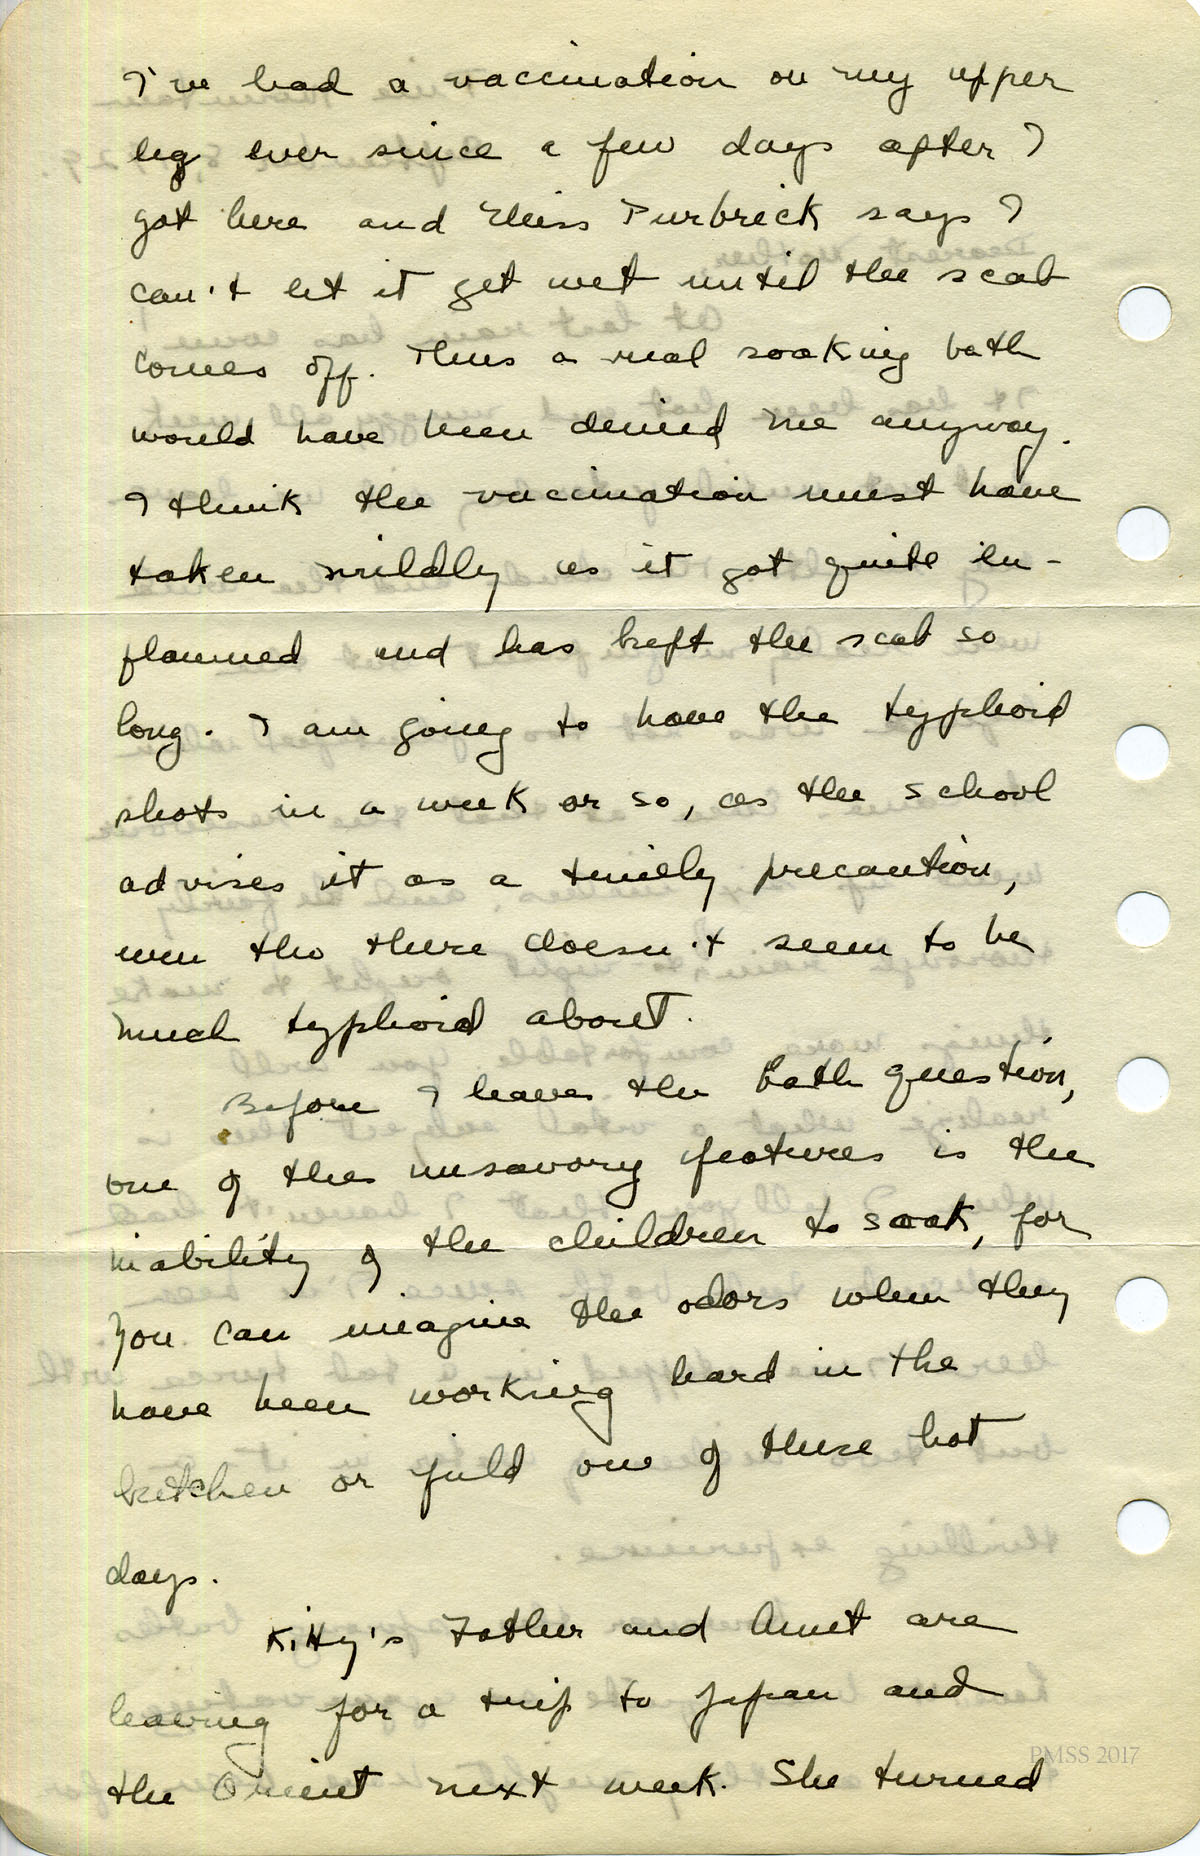 I've had a vaccination on my upper
leg ever since a few days after I
got here and Miss Purbrick says I
can't let it get wet until the scab
comes off. Thus a real soaking bath
would have been denied me anyway.
I think the vaccination must have
taken mildly as it got quite in-
flammed and has kept the scab so
long. I am going to have the typhoid
shots in a week or so, as the school
advises it as a timely precaution,
even tho there doesn't seem to be
much typhoid about.
Before I leave the bath question,
one of the unsavory features is the
inability of the children to soak, for
you can imagine the odors when they
have been working hard in the
kitchen or field one of these hot
days.
Kitty's Father and Aunt are
leaving for a trip to Japan and
the Orient next week. She turned
PMSS 2017